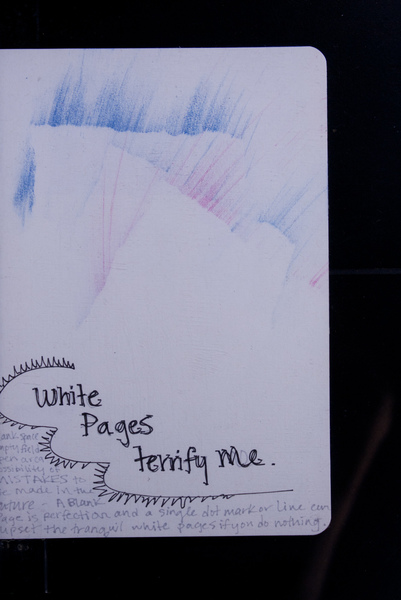 White
Pages
terrify me.
ank space
mpty field
open a ca
ossibility of
MISTAKES to
be made in the
uture - A Blank
age is perfection and a single dot mark or line can
upset the tranquil white pages if you do nothing.